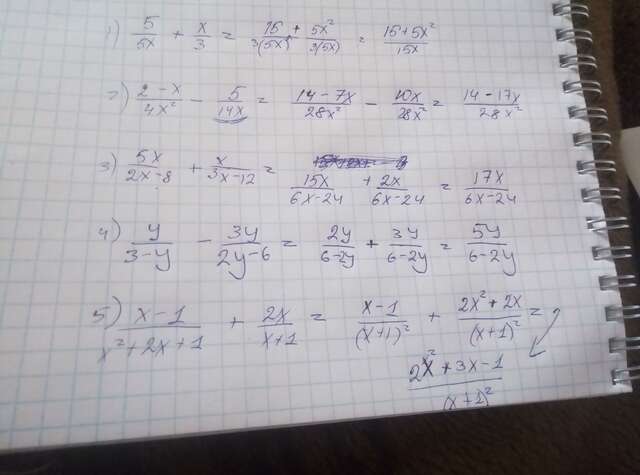 1) 5/5x + x/3 = 15/3(5x) + 5x²/3(5x) = 15+5x²/15x
2) 2-x/4x² - 5/14x = 14-7x/28x² - 10x/28x² = 14-17x/28x²
3) 5x/2x-8 + x/3x-12 = 15x/6x-24 + 2x/6x-24 = 17x/6x-24
4) y/3-y - 3y/2y-6 = 2y/6-2y + 3y/6-2y = 5y/6-2y
5) x-1/x²+2x+1 + 2x/x+1 = x-1/(x+1)² + 2x²+2x/(x+1)² =
2x²+3x-1/(x+1)²